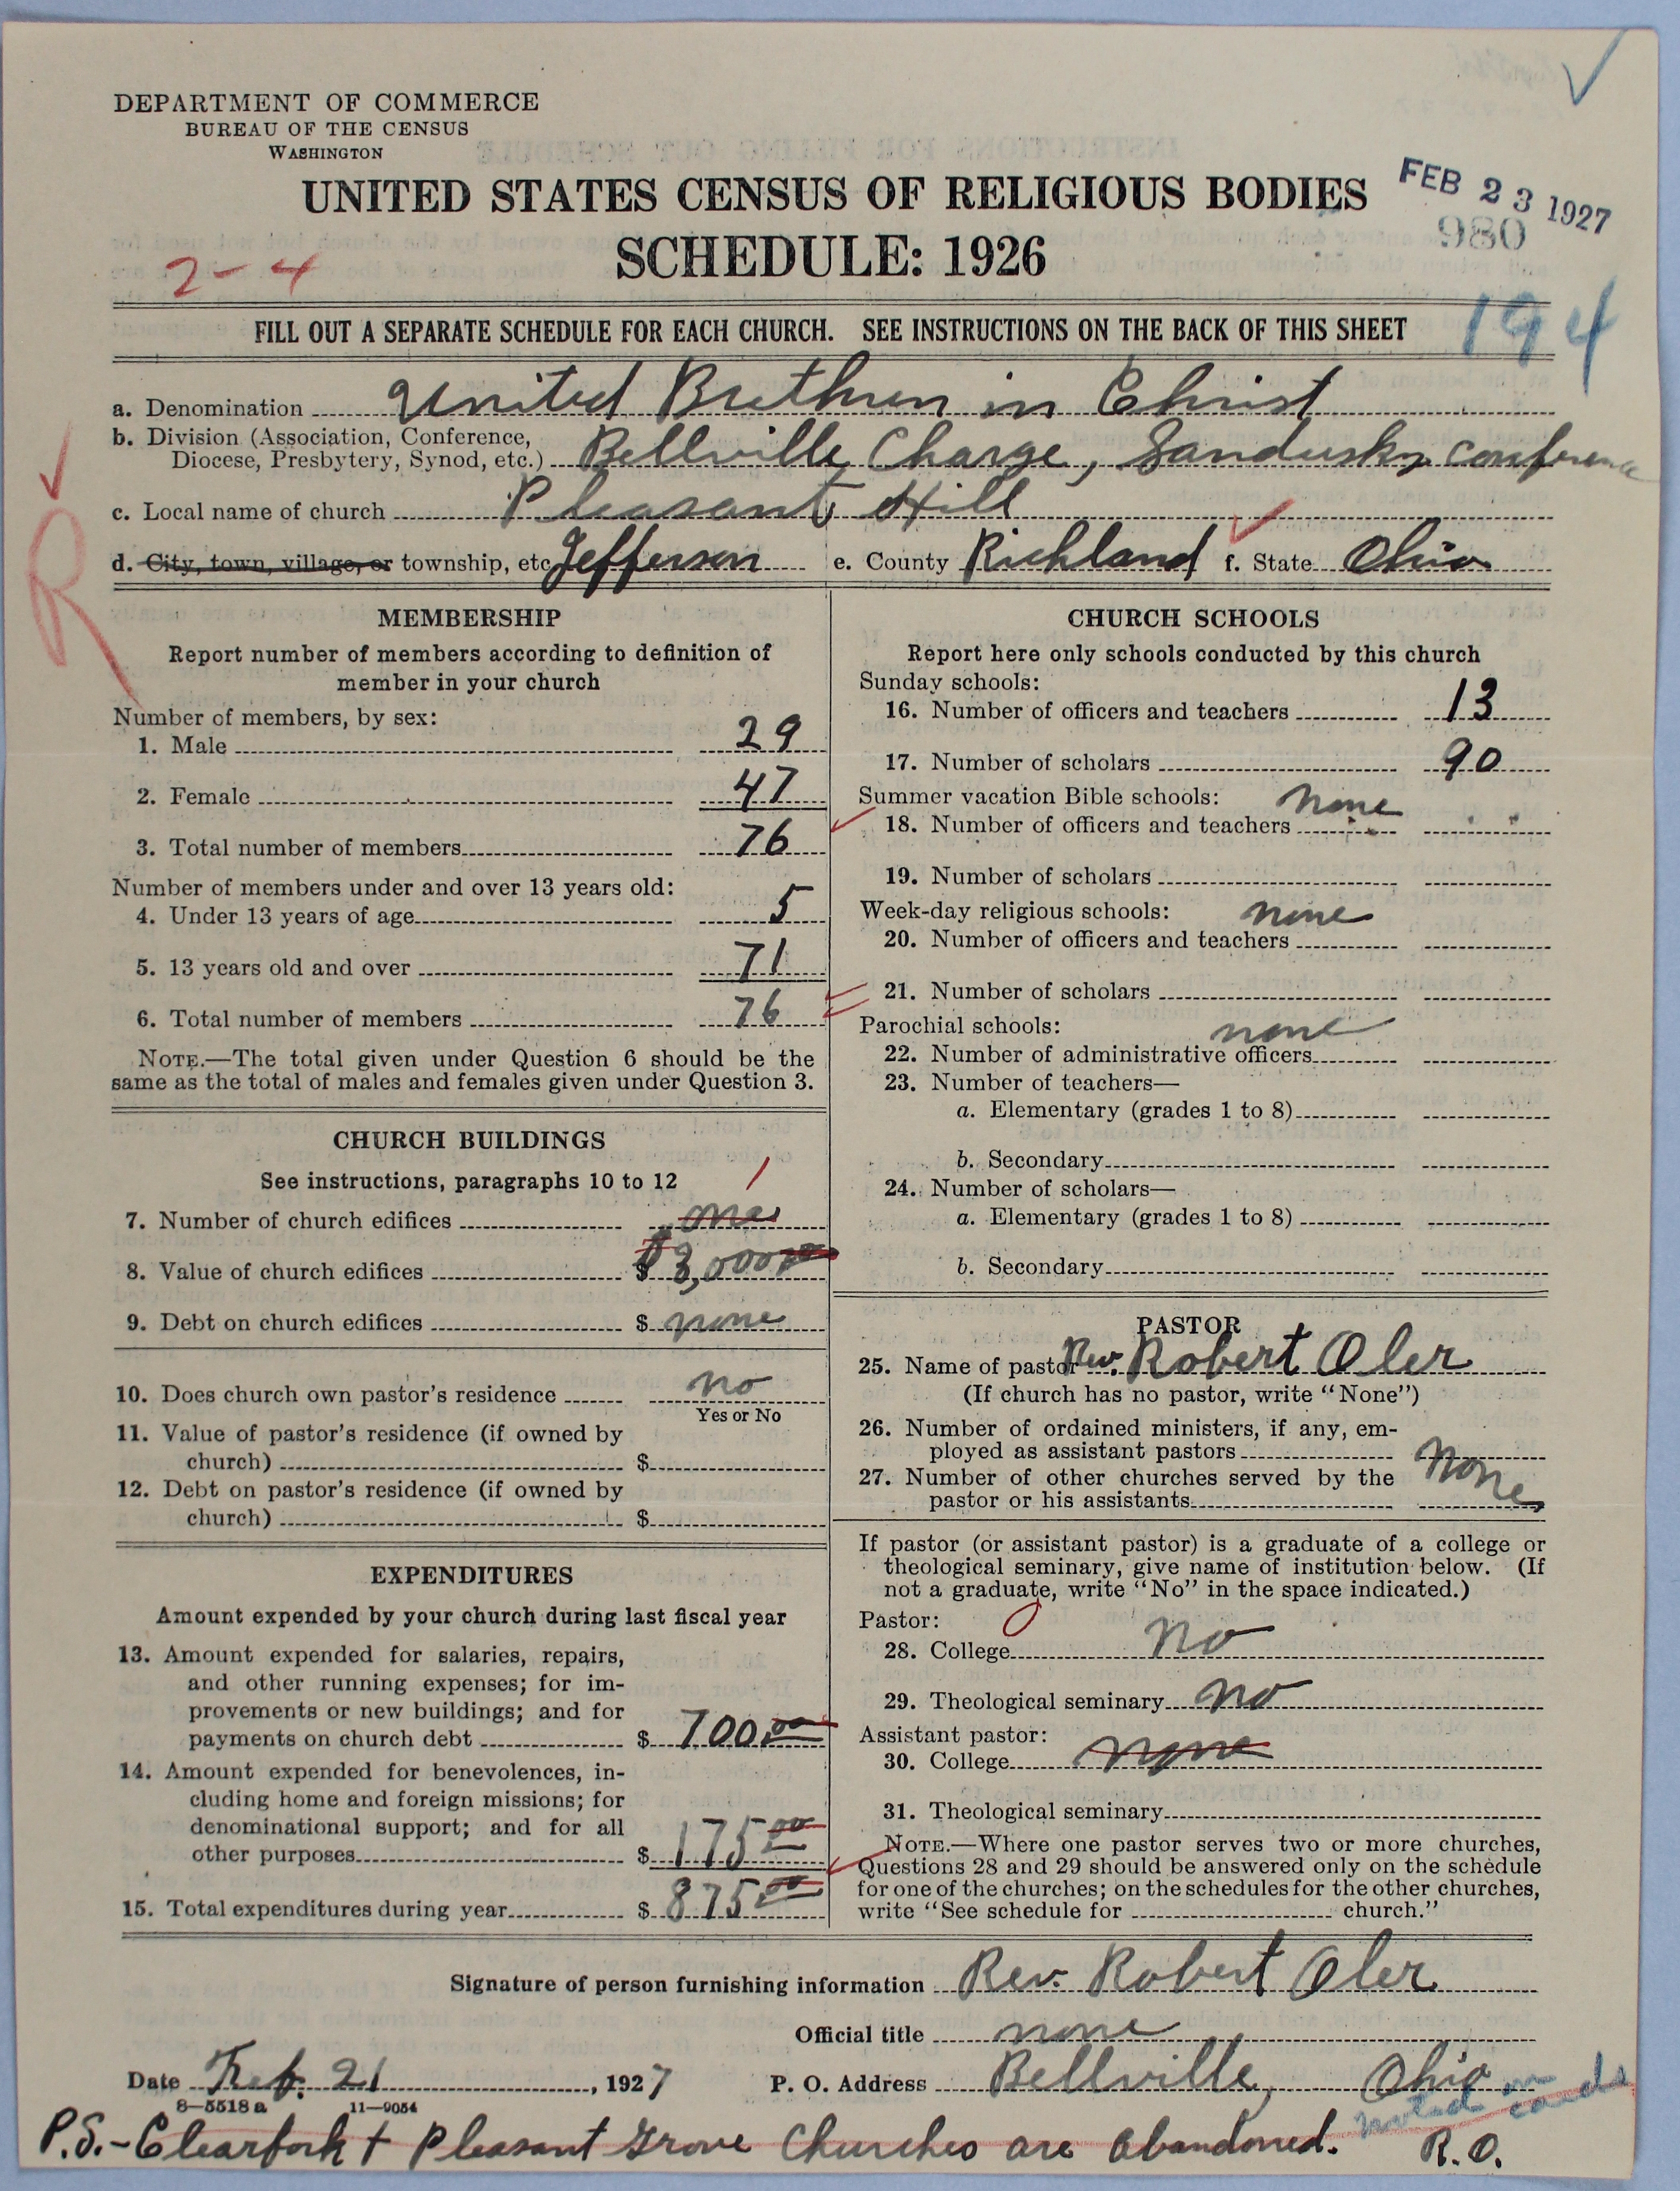 DEPARTMENT OF COMMERCE
BUREAU OF THE CENSUS
WASHINGTON
UNITED STATES CENSUS OF RELIGIOUS BODIES
SCHEDULE: 1926
FEB 23 1927
980
2-4
194
FILL OUT A SEPARATE SCHEDULE FOR EACH CHURCH. SEE INSTRUCTIONS ON THE BACK OF THIS SHEET
a. Denomination United Brethren in Christ
b. Division (Association, Conference,
Diocese, Presbytery, Synod, etc.) Bellville Charge, Sandusky conference
c. Local name of church Pleasant Hill
R
d. City, town, village, or township, etc Jefferson e. County Richland f. State Ohio
MEMBERSHIP
Report number of members according to definition of
member in your church
Number of members, by sex:
1. Male 29
2. Female 47
3. Total number of members 76
Number of members under and over 13 years old:
4. Under 13 years of age 5
5. 13 years old and over 71
6. Total number of members 76
NOTE.—The total given under Question 6 should be the
same as the total of males and females given under Question 3.
CHURCH BUILDINGS
See instructions, paragraphs 10 to 12
1
7. Number of church edifices one
8. Value of church edifices $ 3,000.00
9. Debt on church edifices $ none
10. Does church own pastor's residence no
Yes or No
11. Value of pastor's residence (if owned by
church) $
12. Debt on pastor's residence (if owned by
church) $
EXPENDITURES
Amount expended by your church during last fiscal year
13. Amount expended for salaries, repairs,
and other running expenses; for im-
provements or new buildings; and for
payments on church debt $ 700.00
14. Amount expended for benevolences, in-
cluding home and foreign missions; for
denominational support; and for all
other purposes $ 175.00
15. Total expenditures during year $ 875.00
CHURCH SCHOOLS
Report here only schools conducted by this church
Sunday schools:
16. Number of officers and teachers 13
17. Number of scholars 90
Summer vacation Bible schools: none
18. Number of officers and teachers
19. Number of scholars
Week-day religious schools: none
20. Number of officers and teachers
21. Number of scholars
Parochial schools: none
22. Number of administrative officers
23. Number of teachers—
a. Elementary (grades 1 to 8)
b. Secondary
24. Number of scholars—
a. Elementary (grades 1 to 8)
b. Secondary
PASTOR
25. Name of pastor Rev. Robert Oler
(If church has no pastor, write "None")
26. Number of ordained ministers, if any, em-
ployed as assistant pastors None
27. Number of other churches served by the
pastor or his assistants
If pastor (or assistant pastor) is a graduate of a college or
theological seminary, give name of institution below. (If
not a graduate, write "No" in the space indicated.)
Pastor:
28. College No
29. Theological seminary No
Assistant pastor:
30. College none
31. Theological seminary
NOTE.—Where one pastor serves two or more churches,
Questions 28 and 29 should be answered only on the schedule
for one of the churches; on the schedules for the other churches,
write "See schedule for church."
Signature of person furnishing information Rev. Robert Oler
Official title none
Date Feb. 21, 1927 P. O. Address Bellville, Ohio
8—5518 a 11—9054
noted on cards
P.S.- Clearfork + Pleasant Grove Churches are abandoned. R.O.